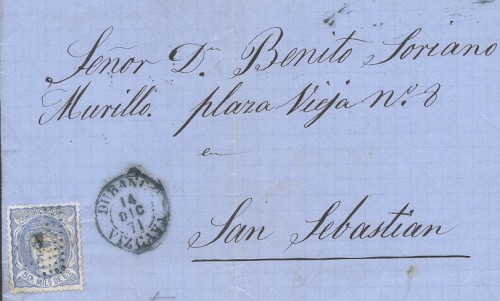 Señor Dn Benito Soriano
Murillo. plaza Vieja nº 8
en
San Sebastian
DURANGO
14
DIC
71
VIZCAYA
50 MILS DE E